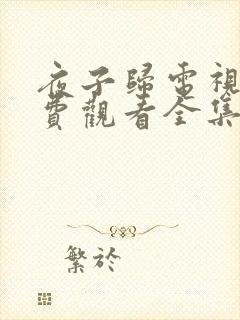 夜子歸電視
費觀看全集
繁於